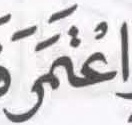 اعْتَمَرَ